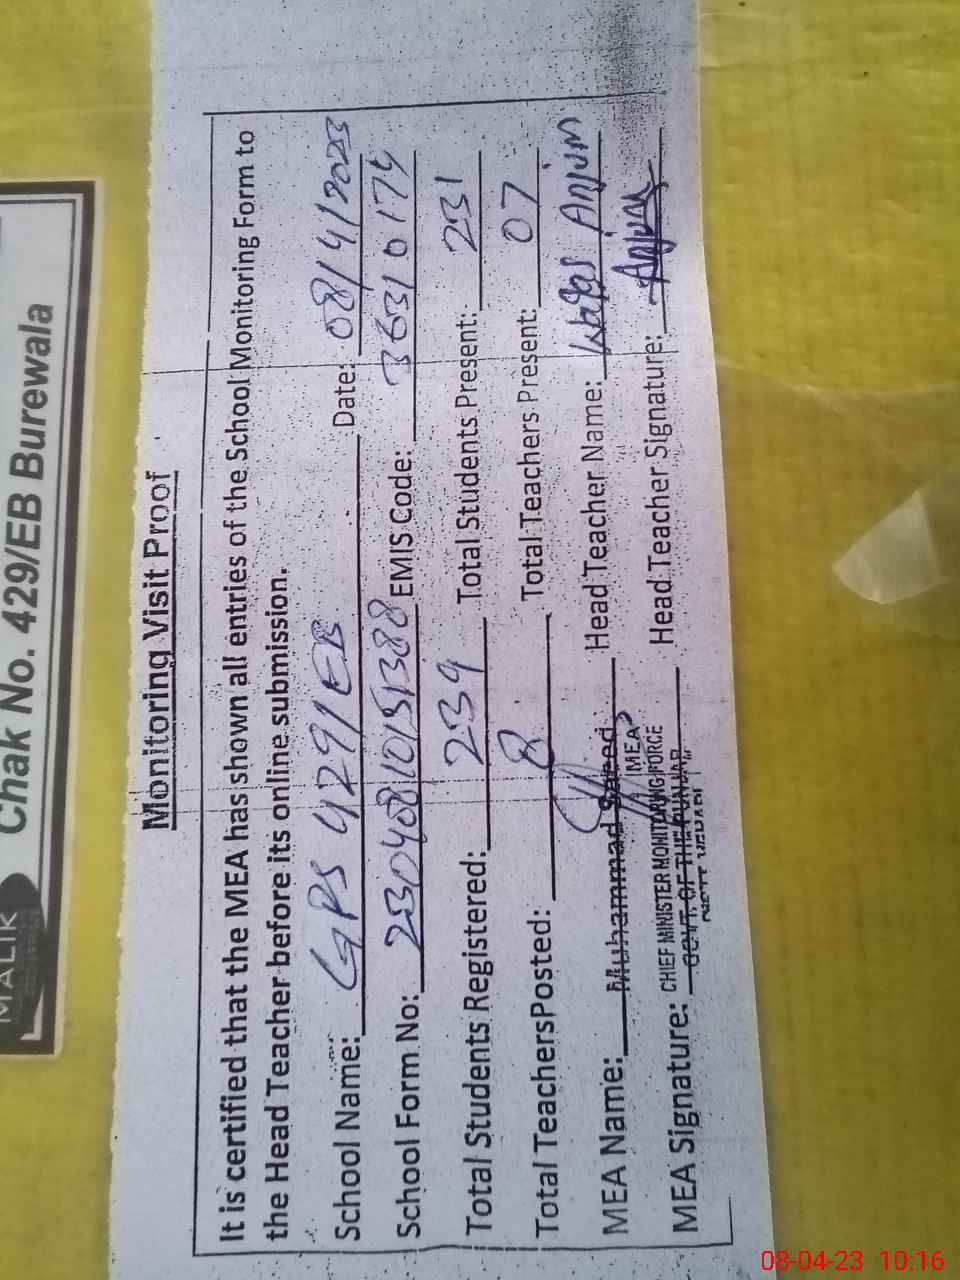 MALIK
Chak No. 429/EB Burewala
Monitoring Visit Proof
It is certified that the MEA has shown all entries of the School Monitoring Form to
the Head Teacher before its online submission.
School Name: GPS 429/EB Date: 08/4/2023
School Form No: 2304081015388 EMIS Code: 36310174
Total Students Registered: 239 Total Students Present: 231
Total TeachersPosted: 8 Total Teachers Present: 07
MEA Name: Muhammad Saeed Head Teacher Name: Waqas Anjum
MEA
MEA Signature: CHIEF MINISTER MONITORING FORCE Head Teacher Signature: Anjum
GOVT. OF THE PUNJAB
DISTT VEHARI
08-04-23 10:16